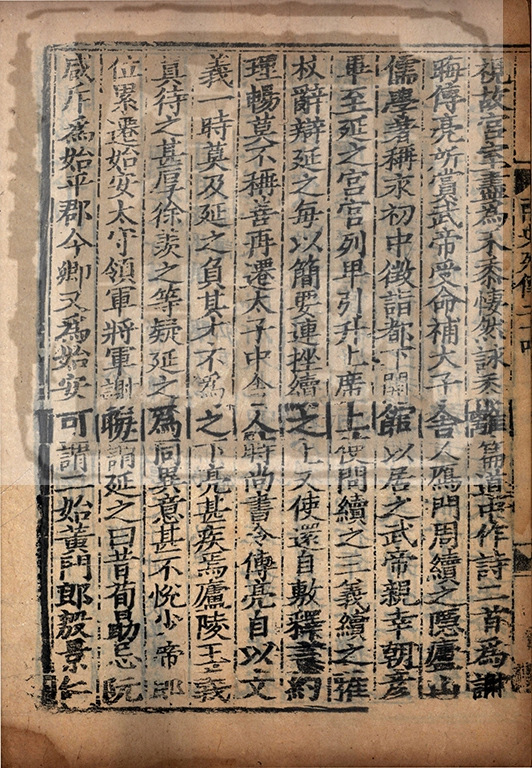 視故宮室盡爲禾黍悽然詠黍離篇道中作詩二首爲謝
晦傅亮所賞武帝受命補太子舍人鴈門周續之隱廬山
儒學著稱永初中徵詣都下開館以居之武帝親幸朝彥
畢至延之官官列卑引升上席上使問續之三義續之雅
杖辭辯延之每以簡要連挫續之上又使還自敷釋言約
理暢莫不稱善再遷太子中舍人時尚書令傅亮自以文
義一時莫及延之負其才不爲之下亮甚疾焉廬陵王義
真待之甚厚徐羨之等疑延之爲同異意甚不悅少帝即
位累遷始安太守領軍將軍謝晦謂延之曰昔荀勗忌阮
咸斥爲始平郡今卿又爲始安可謂二始黃門郎殷景仁